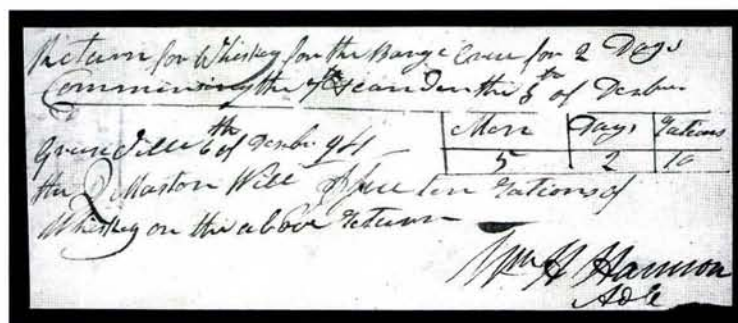 Return for Whiskey for the Barge Crew for 2 Days
Commencing the 7th & End'n the 8th of Desbr
Men Days Rations
Greeneville 6th of Desbr 94
5 2 10
the Q Master Will Issue ten Rations of
Whiskey on the above Return
Wm H Harrison
ADC